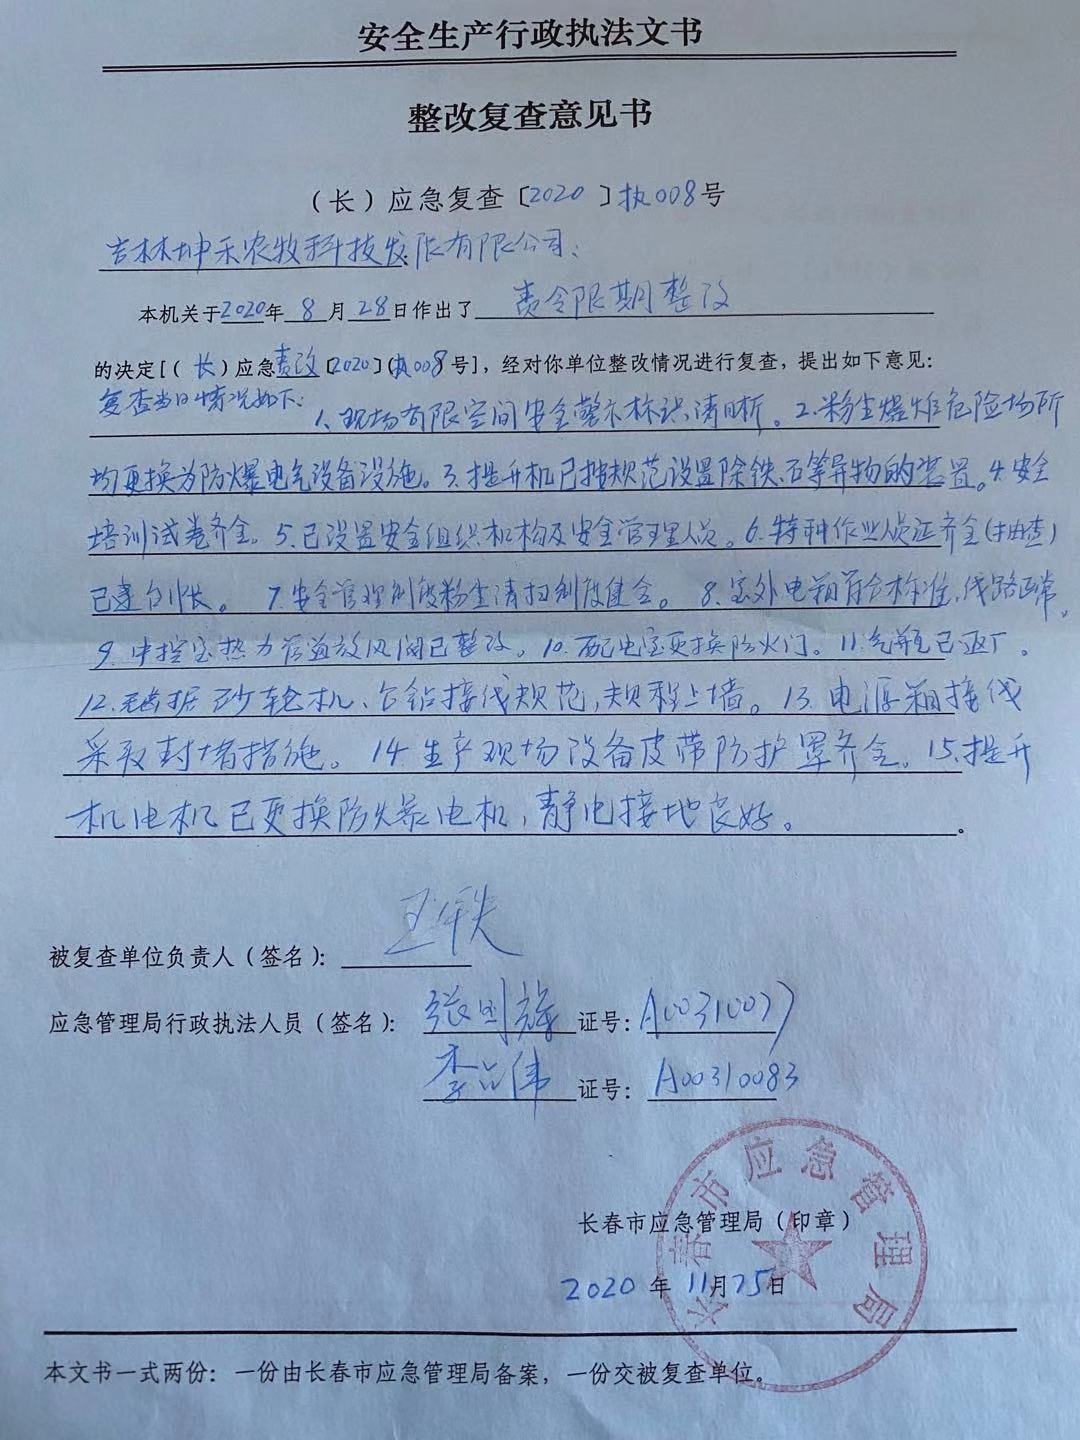 安全生产行政执法文书
整改复查意见书
（长）应急复查〔2020〕执008号
吉林坤禾农牧科技发展有限公司：
本机关于2020年8月28日作出了责令限期整改
的决定[（长）应急责改〔2020〕(执008号]，经对你单位整改情况进行复查，提出如下意见：
复查当日情况如下：
1、现场有限空间安全警示标识清晰。2.粉尘爆炸危险场所
均更换为防爆电气设备设施。3.提升机已按规范设置除铁、石等异物的装置。4.安全
培训试卷齐全。5.已设置安全组织机构及安全管理人员。6.特种作业人员证齐全(抽查)
已建台帐。7.安全管理制度粉尘清扫制度健全。8.室外电箱符合标准，线路正常。
9.中控室热力管道放风阀已整改。10.配电室更换防火门。11.气瓶已返厂。
12.砂轮机、台钻接线规范，规程上墙。13.电源箱接线
采取封堵措施。14.生产现场设备皮带防护罩齐全。15.提升
机电机已更换防爆电机，静电接地良好。
被复查单位负责人（签名）：
应急管理局行政执法人员（签名）：张国辉 证号：A00310077
李 伟 证号：A00310083
长春市应急管理局
长春市应急管理局（印章）
2020年11月25日
本文书一式两份：一份由长春市应急管理局备案，一份交被复查单位。